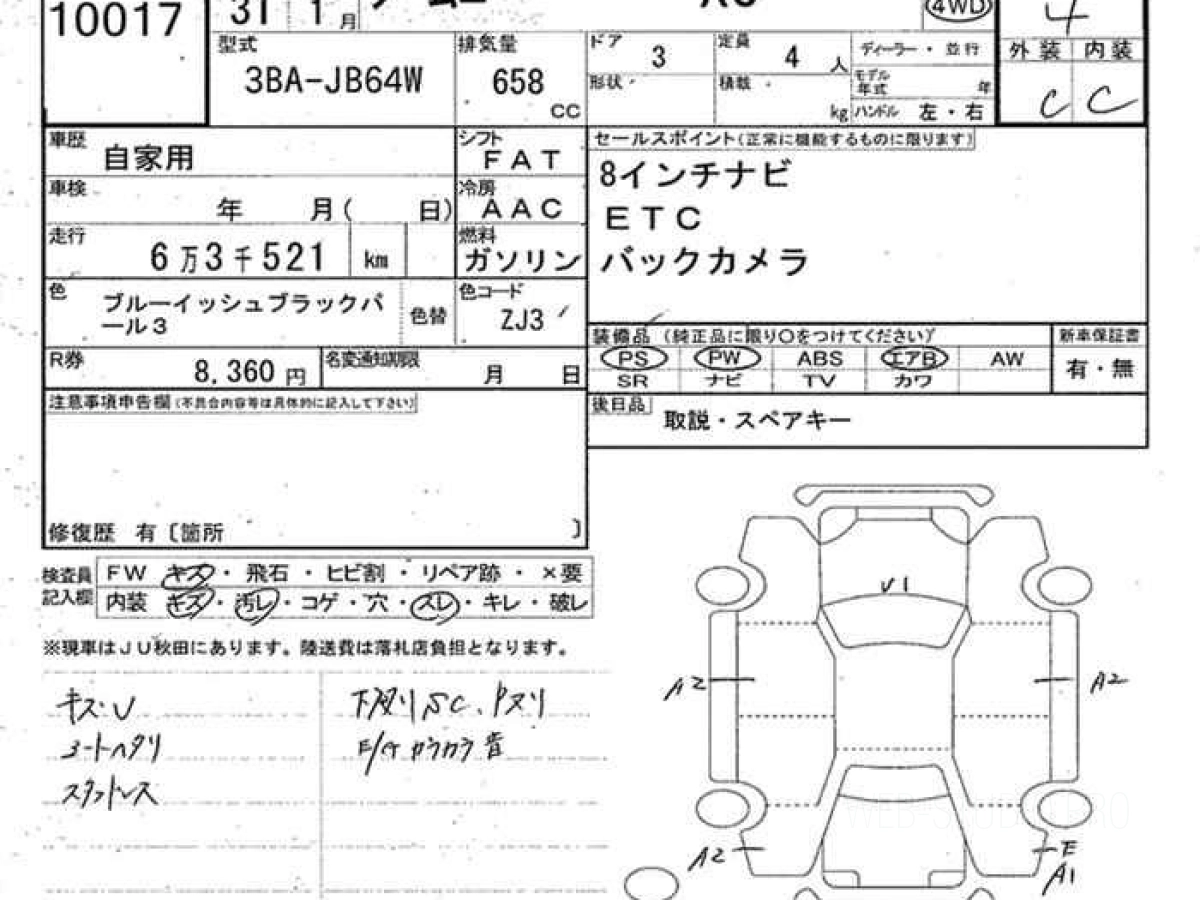 10017
31 1 月
4WD
4
型式 3BA-JB64W
排気量 658 CC
ドア 3
定員 4 人
ディーラー・並行
形状
積載 kg
モデル年式 年
ハンドル 左・右
外装 内装
C C
車歴 自家用
シフト FAT
セールスポイント(正常に機能するものに限ります)
8インチナビ
ETC
バックカメラ
車検 年 月( 日)
冷房 AAC
走行 6万3千521 km
燃料 ガソリン
色 ブルーイッシュブラックパ
ール3
色替
色コード ZJ3
装備品 (純正品に限り○をつけてください)
新車保証書
PS PW ABS エアB AW
SR ナビ TV カワ
有・無
R券 8,360 円
名変通知期限 月 日
後日品 取説・スペアキー
注意事項申告欄(不具合内容等は具体的に記入して下さい)
修復歴 有〔箇所 〕
検査員
記入欄
FW キズ・飛石・ヒビ割・リペア跡・×要
内装 キズ・汚レ・コゲ・穴・スレ・キレ・破レ
※現車はJU秋田にあります。陸送費は落札店負担となります。
キズU
シートヘタリ
スタットレス
下廻りSC、Pヌリ
E/Gカラカラ音
U1
A2
A2
A2
E
A1
WEB-STUDIO.PRO